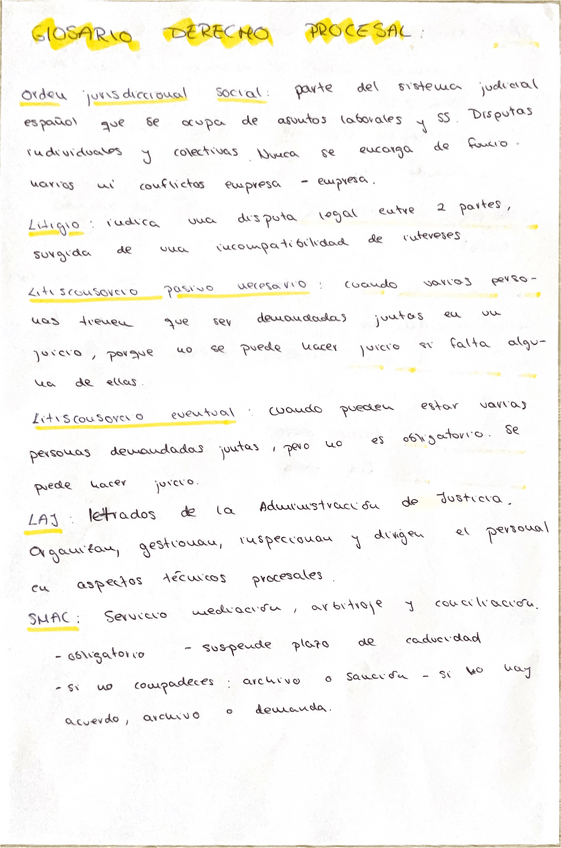 GLOSARIO DERECHO PROCESAL:
Orden jurisdiccional social: parte del sistema judicial
español que se ocupa de asuntos laborales y SS. Disputas
individuales y colectivas. Nunca se encarga de funcio-
narios ni conflictos empresa - empresa.
Litigio: indica una disputa legal entre 2 partes,
surgida de una incompatibilidad de intereses.
Litisconsorcio pasivo necesario: cuando varias perso-
nas tienen que ser demandadas juntas en un
juicio, porque no se puede hacer juicio si falta algu-
na de ellas.
Litisconsorcio eventual: cuando pueden estar varias
personas demandadas juntas, pero no es obligatorio. Se
puede hacer juicio.
LAJ: letrados de la Administración de Justicia.
Organizan, gestionan, inspeccionan y dirigen el personal
en aspectos técnicos procesales.
SMAC: Servicio mediación, arbitraje y conciliación.
- obligatorio - suspende plazo de caducidad
- si no compadeces: archivo o sanción - si no hay
acuerdo, archivo o demanda.